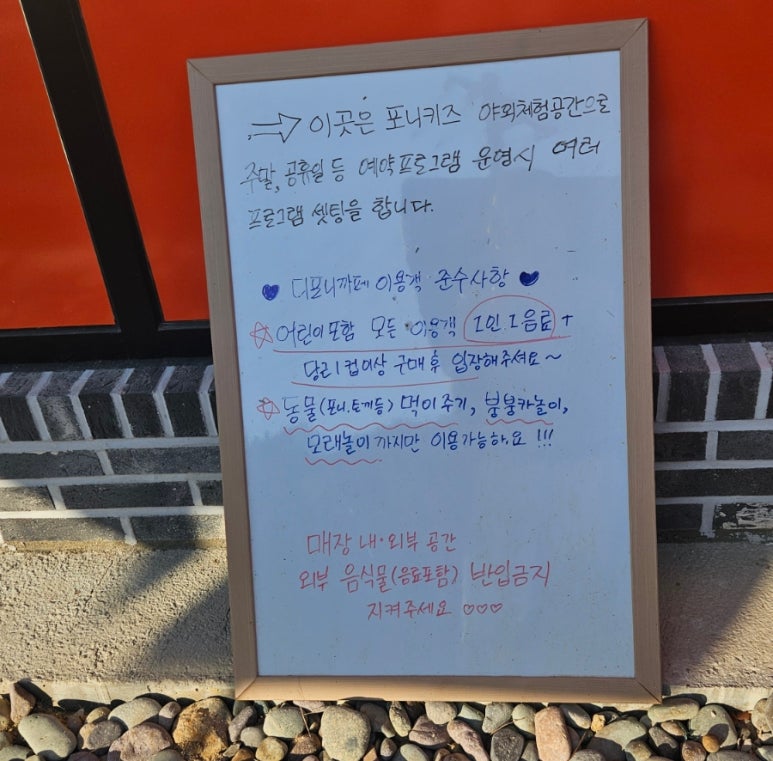 ⇒ 이곳은 포니키즈 야외체험공간으로
주말, 공휴일 등 예약프로그램 운영시 여러
프로그램 셋팅을 합니다.
♥ 디포니까페 이용객 준수사항 ♥
☆ 어린이포함 모든 이용객 1인 1음료 +
당근1컵이상 구매 후 입장해주셔요~
☆ 동물(포니.토끼등) 먹이주기, 붕붕카놀이,
모래놀이 까지만 이용가능해요 !!!
매장 내·외부 공간
외부 음식물(음료포함) 반입금지
지켜주세요 ♡♡♡